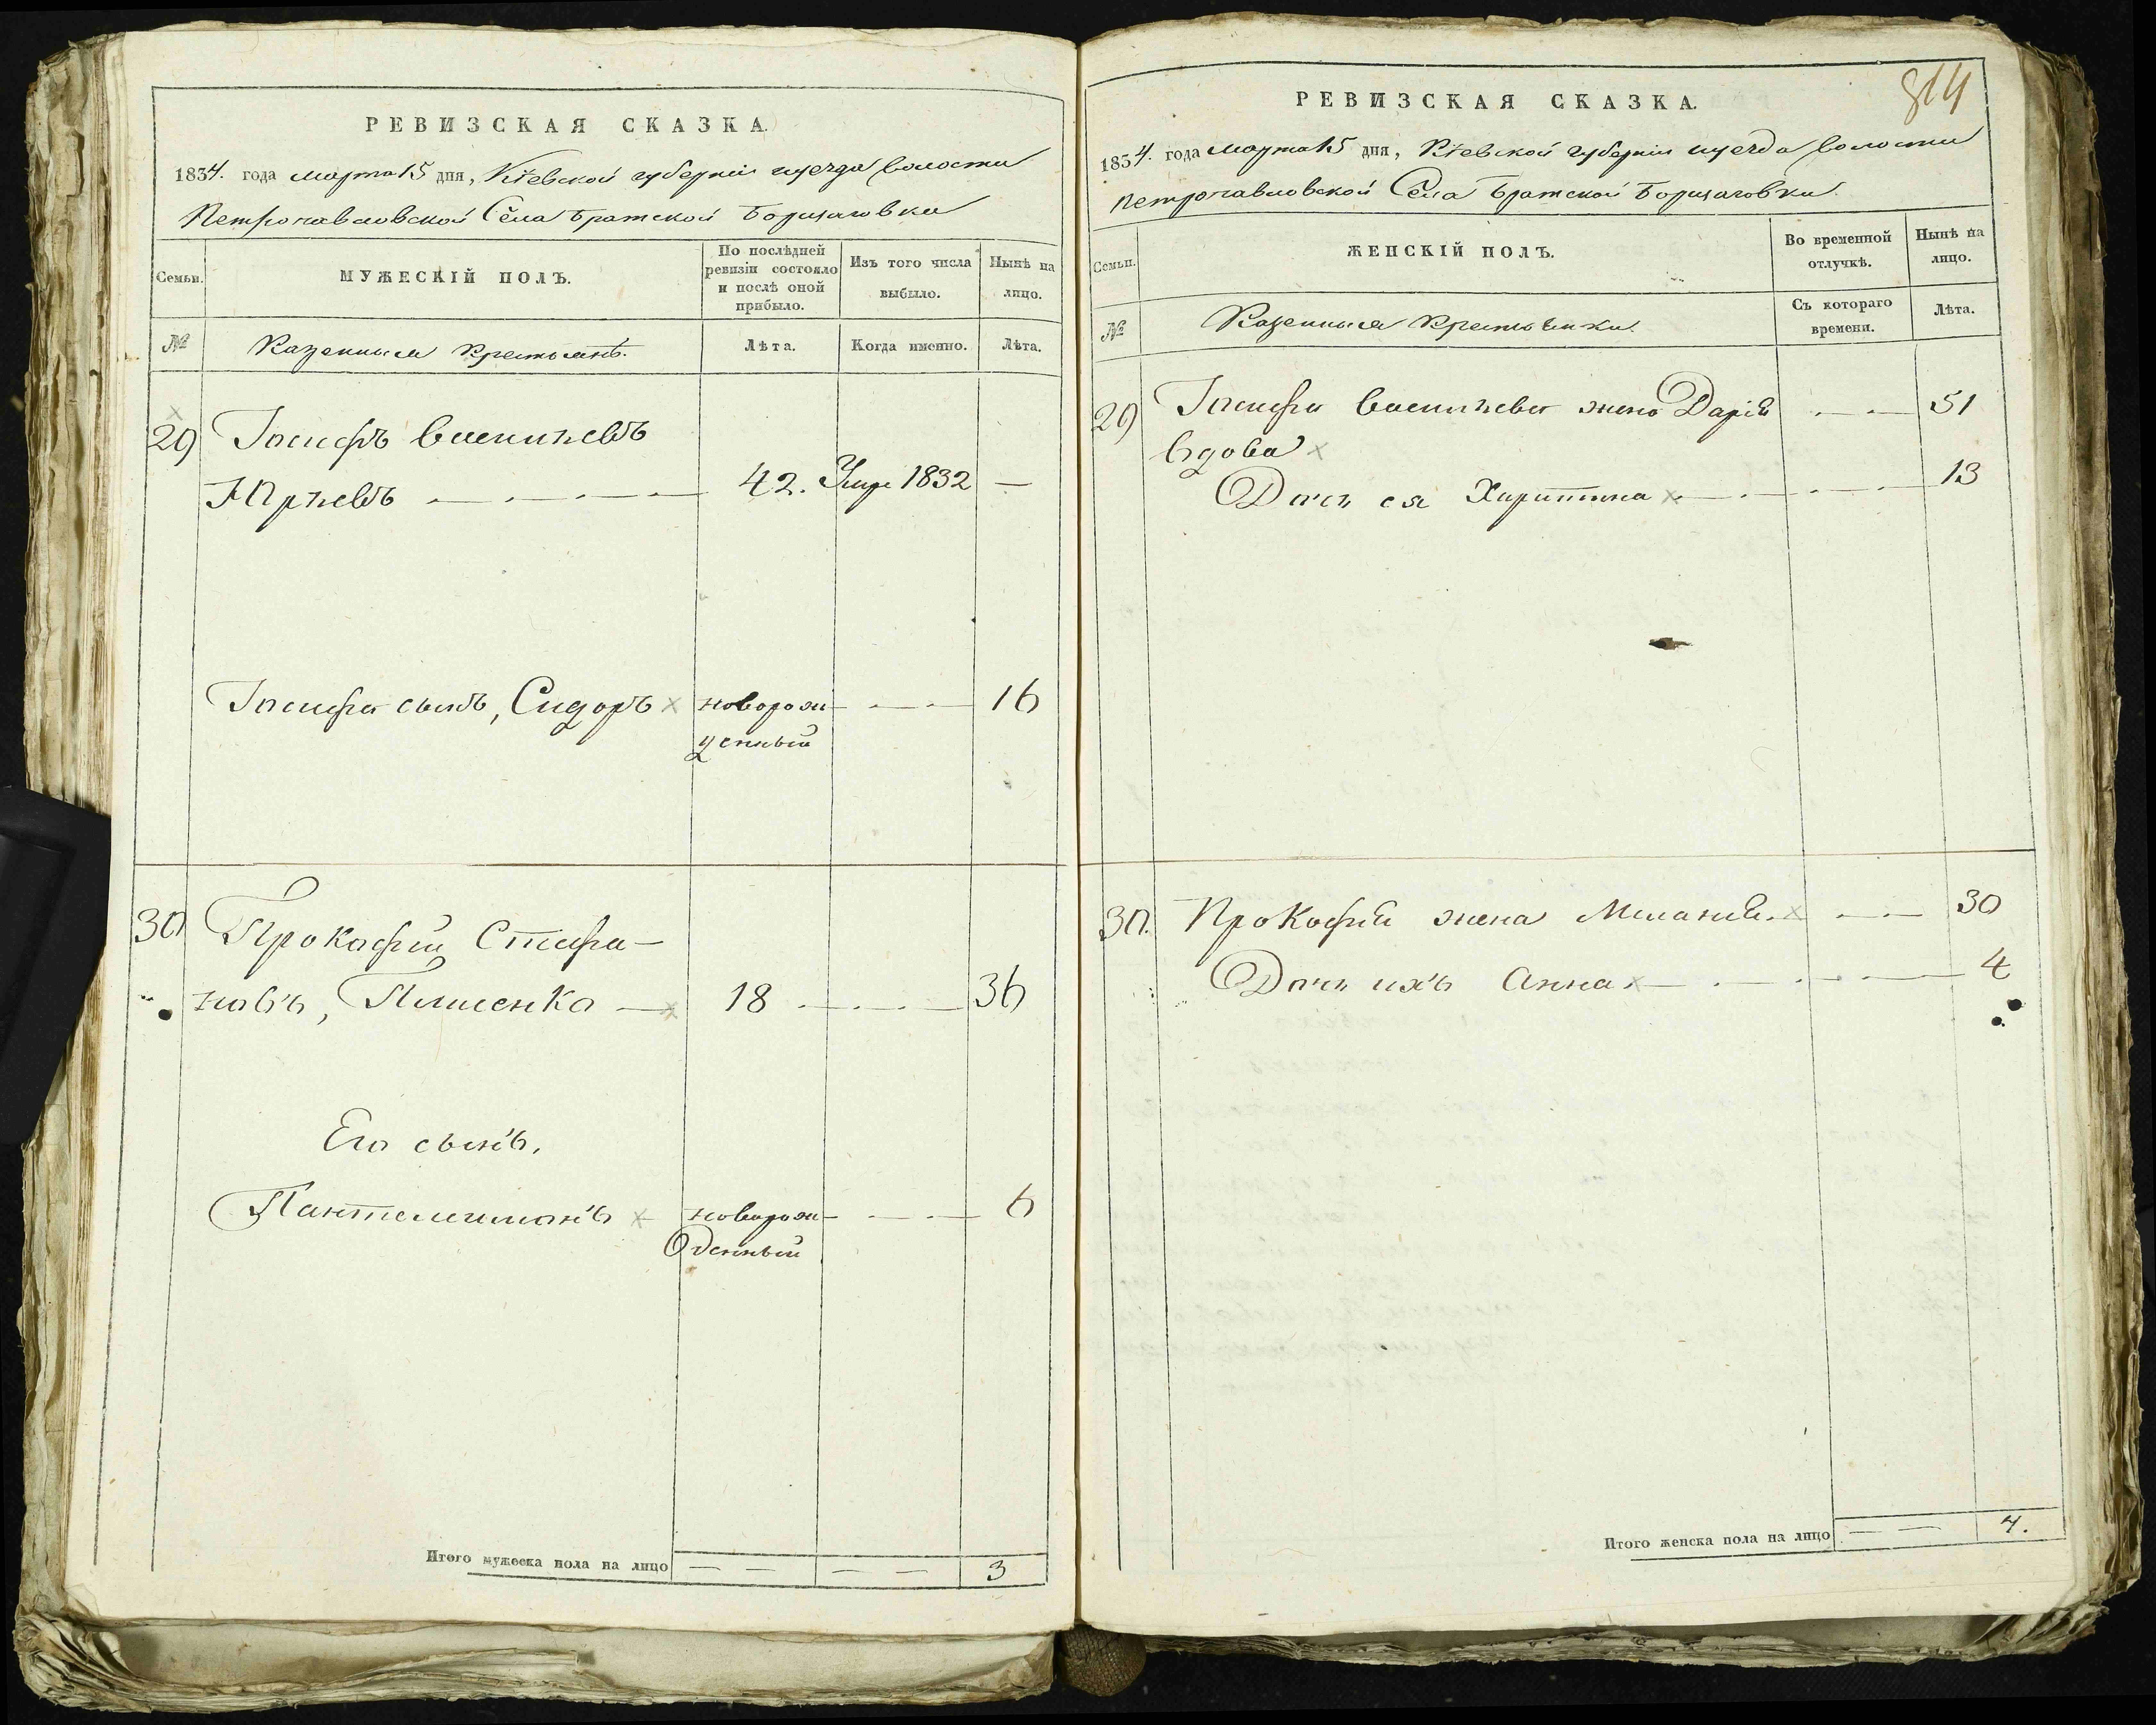 РЕВИЗСКАЯ СКАЗКА.
1834. года марта 15 дня, Кіевской губерніи и уезда волости
Петропавловской Села Братской Борщаговки
Семьи.
МУЖЕСКІЙ ПОЛЪ.
По послѣдней ревизіи состояло и послѣ оной прибыло.
Изъ того числа выбыло.
Нынѣ на лицо.
№
Казенныя Крестьянѣ.
Лѣта.
Когда именно.
Лѣта.
29 Іосифъ
Юрьевъ 42. Умре 1832 —
Іосифа сынъ, Сидоръ новорож- 16
денный
30 Прокофій Стефа-
новъ, 18 36
Его сынъ,
Пантелеимонъ новорож- 6
денный
Итого мужеска пола на лицо — — — — 3
814
РЕВИЗСКАЯ СКАЗКА.
1834. года марта 15 дня, Кіевской губерніи и уезда волости
Петропавловской Села Братской Борщаговки
Семьи.
ЖЕНСКІЙ ПОЛЪ.
Во временной отлучкѣ.
Нынѣ на лицо.
№
Казенныя Крестьянки.
Съ котораго времени.
Лѣта.
29 Іосифа жена Дарія 51
вдова
Дочь ея Харитина 13
30. Прокофія жена Меланія. 30
Дочь ихъ Анна 4
Итого женска пола на лицо — — 4.